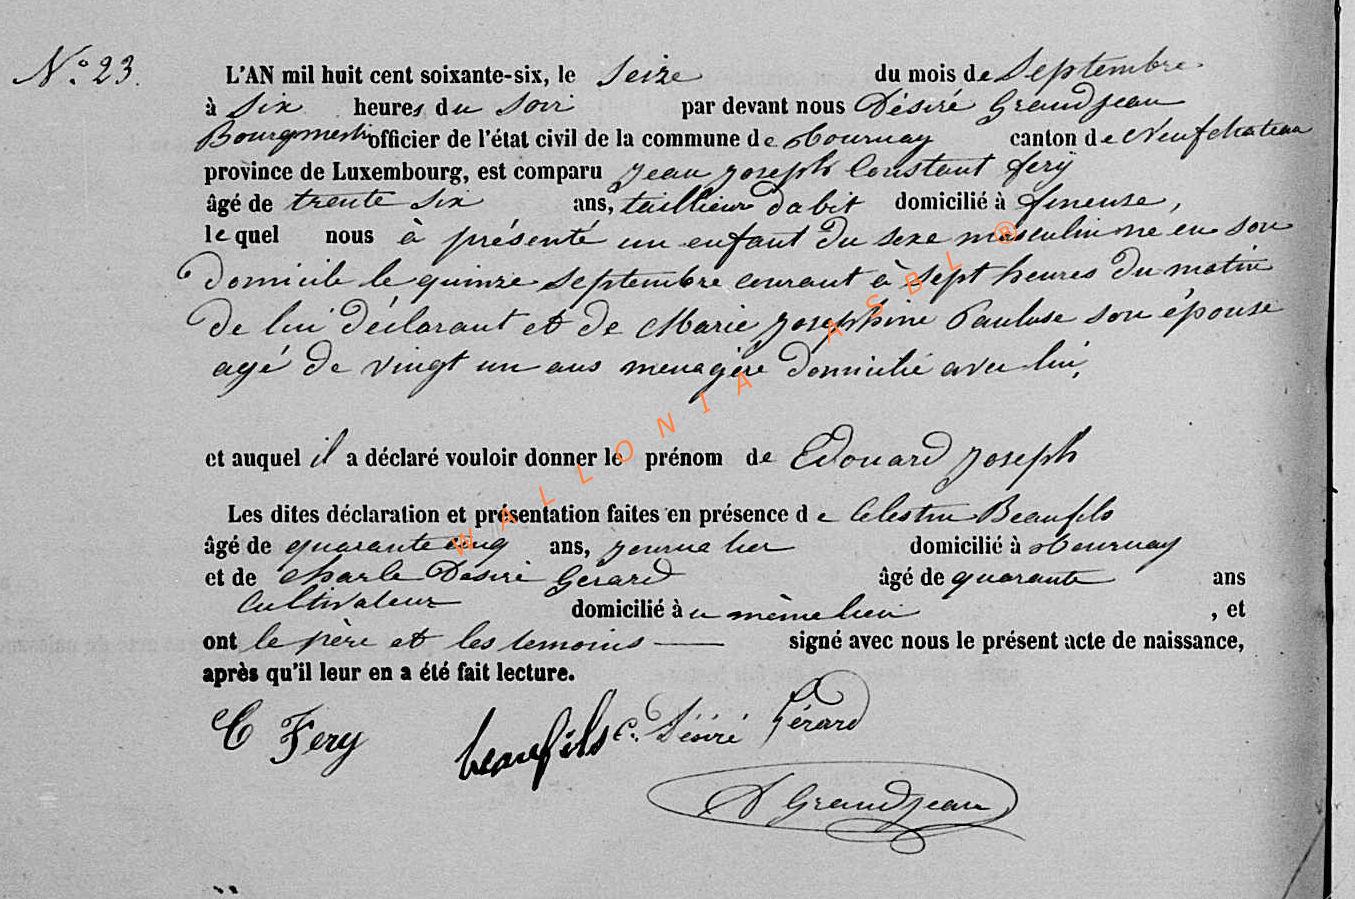 N.o 23.
L'AN mil huit cent soixante-six, le Seize du mois de Septembre
à Six heures du Soir par devant nous Désiré Grandjean
Bourgmestre officier de l'état civil de la commune de Tournay canton de Neufchateau
province de Luxembourg, est comparu Jean Joseph Constant Fery
âgé de trente six ans, taillieur d'abit domicilié à Fineuse,
lequel nous à présenté un enfant du sexe masculin né en son
domicile le quinze Septembre courant à Sept heures du matin
de lui déclarant et de Marie Josephine Pauluse son épouse
agé de vingt un ans menagère domicilié avec lui,
et auquel il a déclaré vouloir donner le prénom de Edouard Joseph
Les dites déclaration et présentation faites en présence de Celestin Beaufils
âgé de quarante cinq ans, journalier domicilié à Tournay
et de Charle Désiré Gérard âgé de quarante ans
Cultivateur domicilié à u même lieu , et
ont le père et les temoins signé avec nous le présent acte de naissance,
après qu'il leur en a été fait lecture.
C Fery beaufils c. Désiré Gérard
D Grandjean
WALLONIA ASBL ®